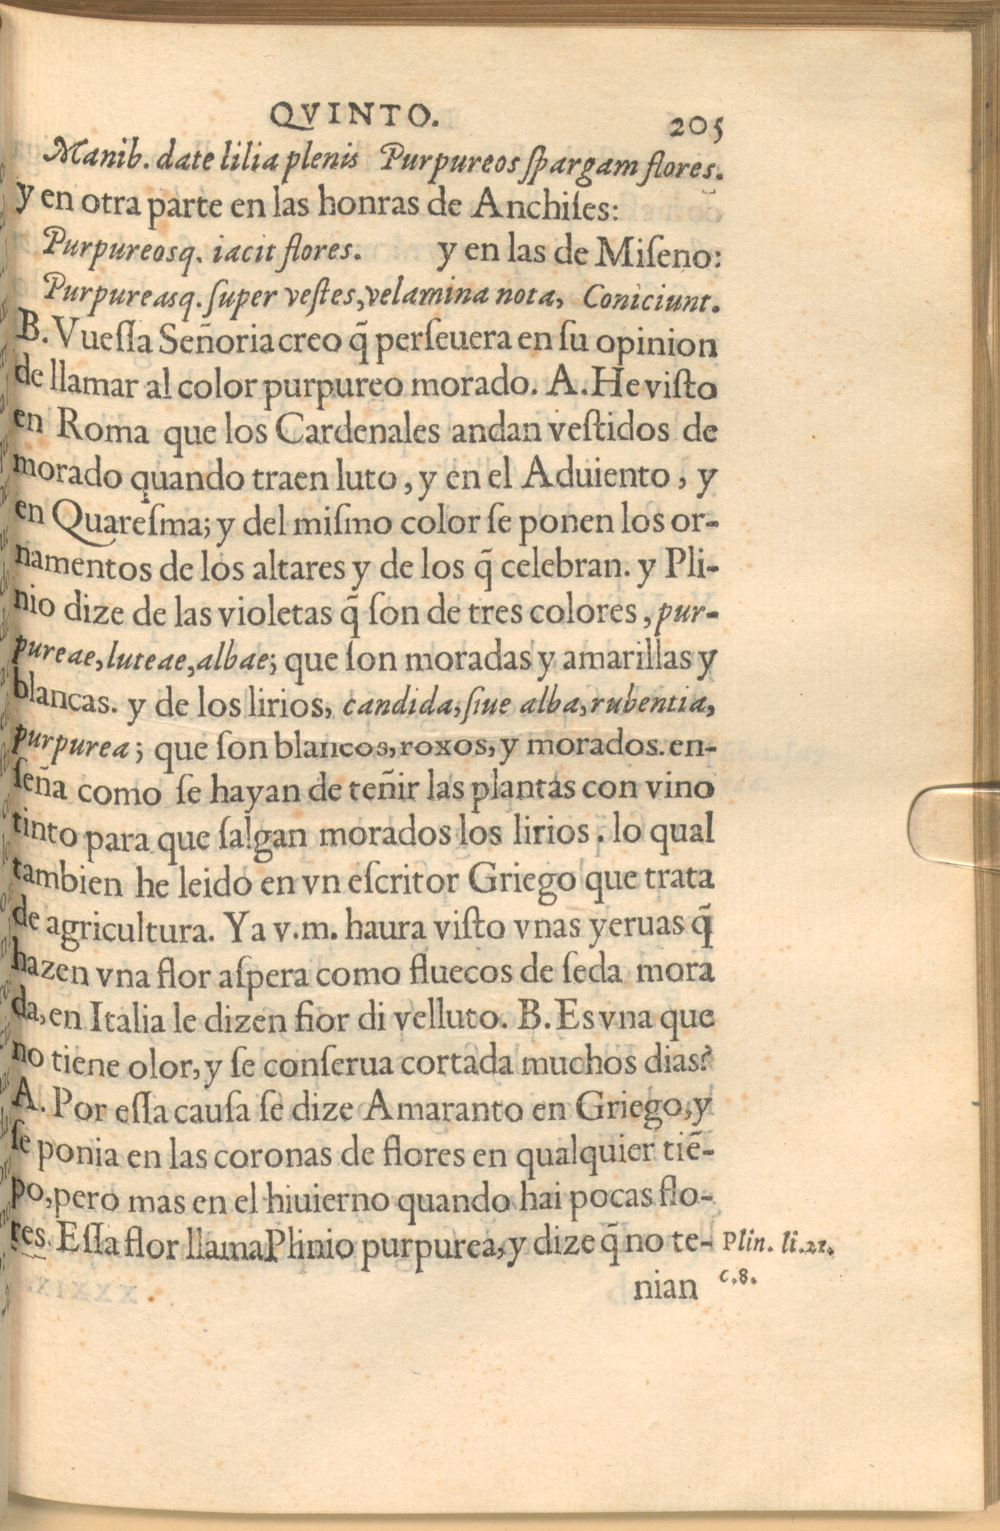 QVINTO. 205
Manib. date lilia plenis Purpureos ſpargam flores.
y en otra parte en las honras de Anchiſes:
Purpureosq. iacit flores. y en las de Miſeno:
Purpureasq. ſuper veſtes, velamina nota, Coniciunt.
B. Vueſſa Señoria creo q̃ perſeuera en ſu opinion
de llamar al color purpureo morado. A. He viſto
en Roma que los Cardenales andan veſtidos de
morado quando traen luto, y en el Aduiento, y
en Quareſma; y del miſmo color ſe ponen los or-
namentos de los altares y de los q̃ celebran. y Pli-
nio dize de las violetas q̃ ſon de tres colores, pur-
pureae, luteae, albae; que ſon moradas y amarillas y
blancas. y de los lirios, candida, ſiue alba, rubentia,
purpurea; que ſon blancos, roxos, y morados. en-
ſeña como ſe hayan de teñir las plantas con vino
tinto para que ſalgan morados los lirios. lo qual
tambien he leido en vn eſcritor Griego que trata
de agricultura. Ya v.m. haura viſto vnas yeruas q̃
hazen vna flor aſpera como fluecos de ſeda mora
da, en Italia le dizen fior di velluto. B. Es vna que
no tiene olor, y ſe conſerua cortada muchos dias?
A. Por eſſa cauſa ſe dize Amaranto en Griego, y
ſe ponia en las coronas de flores en qualquier tiẽ-
po, pero mas en el hiuierno quando hai pocas flo-
res. Eſſa flor llama Plinio purpurea, y dize q̃ no te- Plin. li.21.
nian c.8.